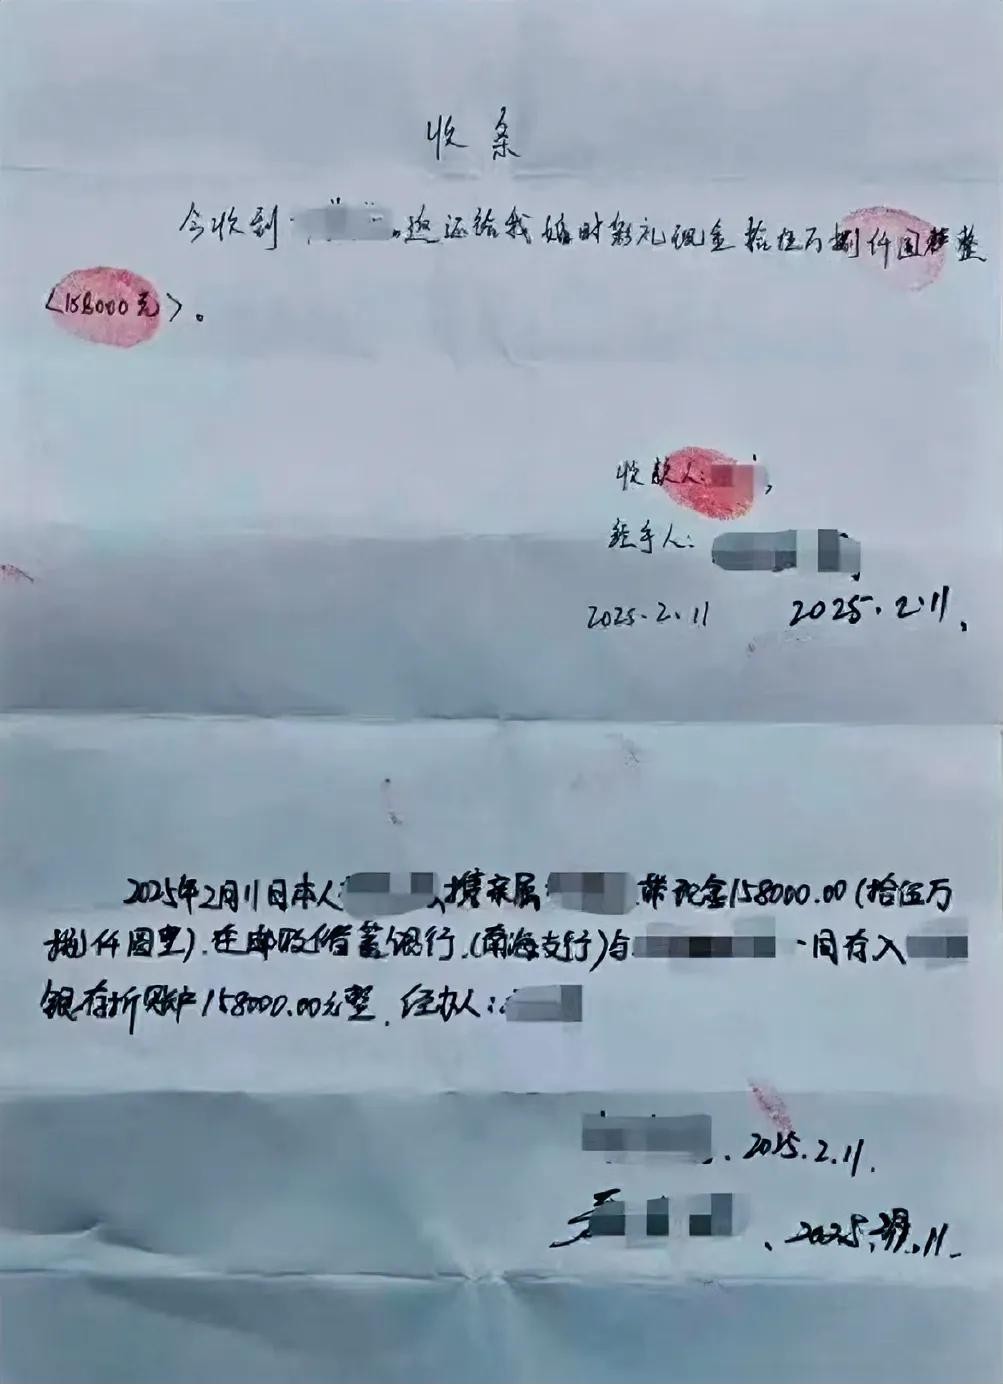 收条
今收到 返还给我婚时彩礼现金拾伍万捌仟圆整
<158000元>。
收款人:
经手人:
2025.2.11 2025.2.11.
2025年2月11日本人 携家属 带现金158000.00(拾伍万
捌仟圆整).在邮政储蓄银行.(南海支行)与 一同存入
银存折账户158000.00元整.经办人:
.2025.2.11.
.2025. .11.